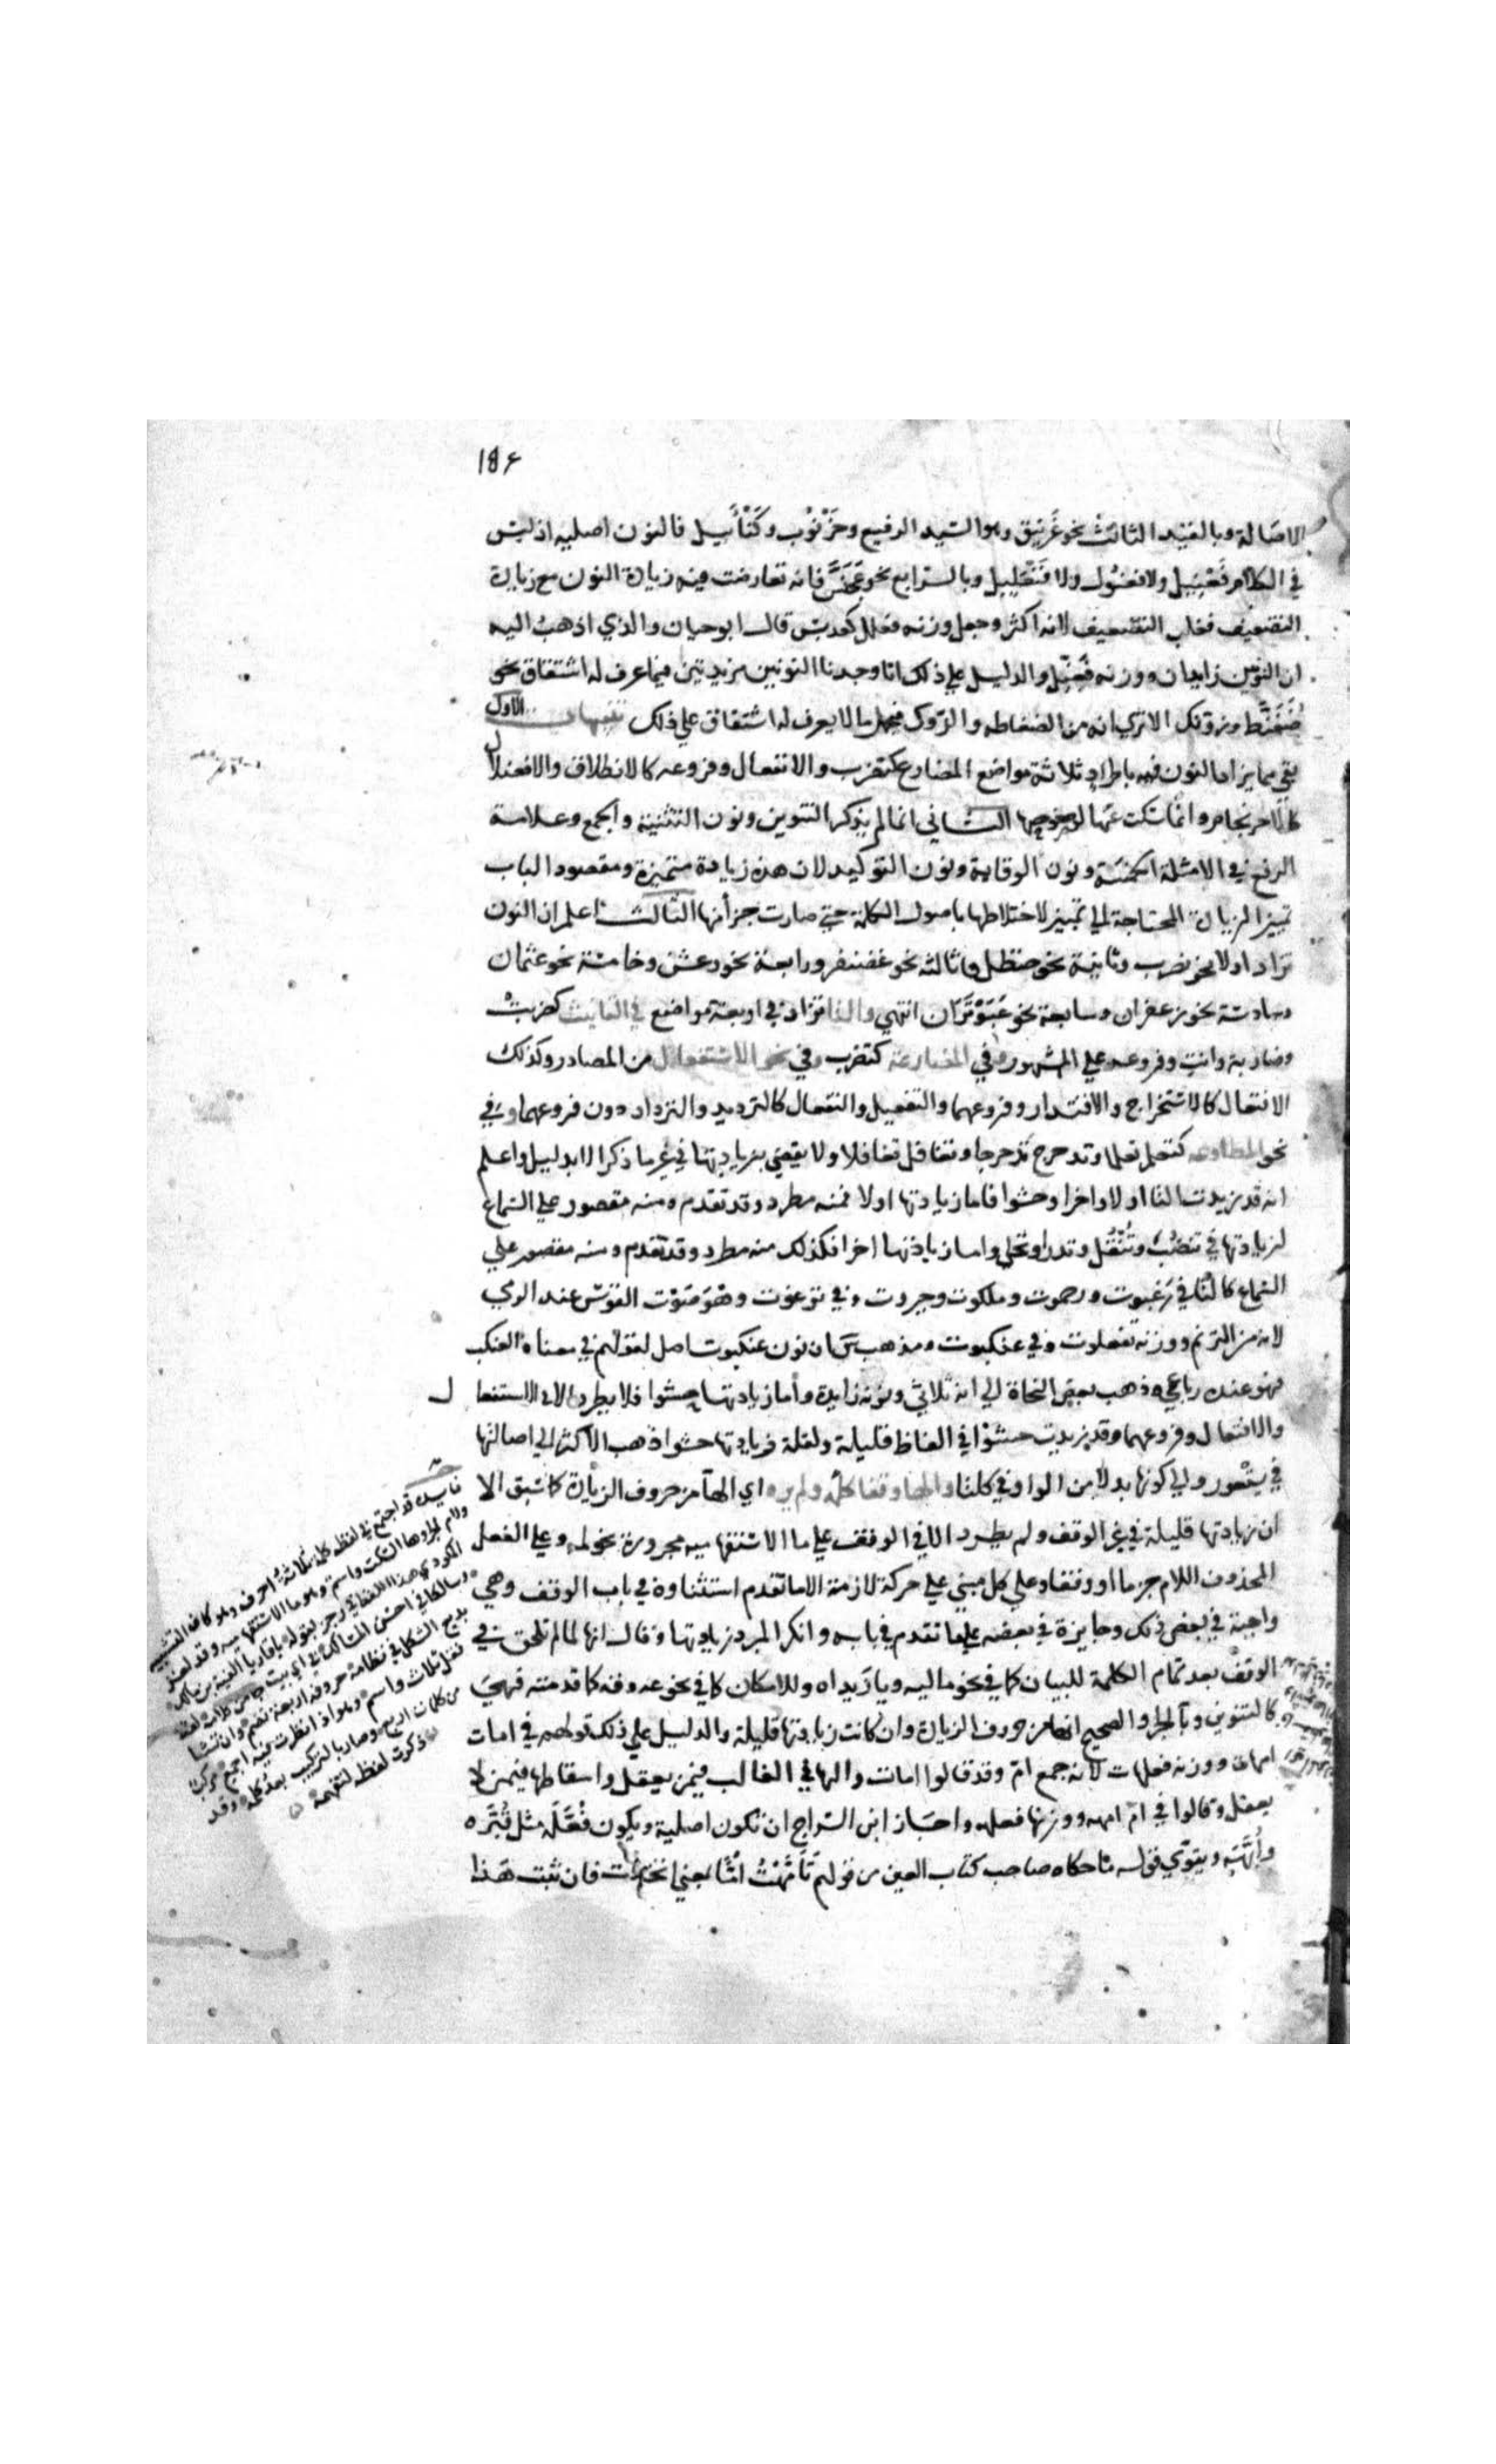 ١٨٤
الاصالة وبالقيد الثالث نحو غرنيق وهو السيد الرفيع وخرنوب وكنأبيل فالنون اصلية اذ ليس
في الكلام فعنيل ولا فعنول ولا فنعليل وبالرابع نحو عجنس فانه تعارضت فيه زيادة النون مع زيادة
التضعيف فغلب التضعيف لانه اكثر وجعل وزنه فعلل كعدبس قال ابو حيان والذي اذهب اليه
ان النونين زايدتان ووزنه فعنل والدليل علي ذلك انا وجدنا النونين مزيدتين فيما عرف له اشتقاق نحو
ضفنط وزونك الا تري انه من الضفاطه والزوك فيحمل ما لا يعرف له اشتقاق علي ذلك تنبيهات الاول
بقي مما يزاد النون فيه باطراد ثلاثة مواضع المضارع كنضرب والانفعال وفروعه كالانطلاق والافعنلال
كالاحرنجام وانما سكت عنها لوضوحها الثاني انما لم يذكر التنوين ونون التثنية والجمع وعلامة
الرفع في الامثلة الخمسة ونون الوقاية ونون التوكيد لان هذه زيادة متميزة ومقصود الباب
تمييز الزيادة المحتاجة الي تمييز لاختلاطها باصول الكلمة حتي صارت جزأ منها الثالث اعلم ان النون
تزاد اولا نحو نضرب وثانية نحو حنظل وثالثة نحو غضنفر ورابعة نحو رعشن وخامسة نحو عثمان
وسادسة نحو زعفران وسابعة نحو عبوثران انتهي والتا تزاد في اربعة مواضع في التانيث كضربت
وضاربة وانت وفروعه علي المشهور وفي المضارعة كتضرب وفي نحو الاستفعال من المصادر وكذلك
الافتعال كالاستخراج والاقتدار وفروعهما والتفعيل والتفعال كالترديد والترداد دون فروعهما وفي
نحو المطاوعه كتعلم تعلما وتدحرج تدحرجا وتغافل تغافلا ولا يقضي بزيادتها في غير ما ذكر الا بدليل واعلم
انه قد زيدت التا اولا واخرا وحشوا فاما زيادتها اولا فمنه مطرد وقد تقدم ومنه مقصور علي السماع
لزيادتها في تنضب وتتفل وتدرا وتحلي واما زيادتها اخرا فكذلك منه مطرد وقد تقدم ومنه مقصور علي
السماع كالتا في رغبوت ورحموت وملكوت وجبروت وفي ترنموت وهو صوت القوس عند الرمي
لانه من الترنم ووزنه تفعلوت وفي عنكبوت ومذهب س ان نون عنكبوت اصل لقولهم في معناه العنكب
فهو عنده رباعي وذهب بعض النحاة الي انه ثلاثي ونونه زايدة وأما زيادتها حشوا فلا يطرد الا في الاستفعال
والافتعال وفروعهما وقد زيدت حشوا في الفاظ قليلة ولقلة زيادتها حشوا ذهب الاكثر الي اصالتها
في يستعور والي كونها بدلا من الواو في كلتا والها وقفا كلمه ولم يره اي الها من حروف الزيادة كما سبق الا
ان زيادتها قليلة في غير الوقف ولم يطرد الا في الوقف علي ما الاستفهامية مجرورة نحو لمه وعلي الفعل
المحذوف اللام جزما او وقفا وعلي كل مبني علي حركة لازمة الا ما تقدم استثناوه في باب الوقف وهي
واجبة في بعض ذلك وجايزة في بعضه علي ما تقدم في بابه وانكر المبرد زيادتها وقال انها لم تلحق في
الوقف بعد تمام الكلمة للبيان كما في نحو ماليه ويا زيداه وللامكان كما في نحو عه وقه كما قدمته فهي
كالتنوين وبا الجر والصحيح انها من حروف الزيادة وان كانت زيادتها قليلة والدليل علي ذلك قولهم في امات
امهات ووزنه فعلهات لانه جمع ام وقد قالوا امات والها في الغالب فيمن يعقل واسقاطها فيمن لا
يعقل وقالوا في ام امهه ووزنها فعلهه واجاز ابن السراج ان تكون اصلية ويكون فعله مثل قبره
وأبهة ويقوي قوله ما حكاه صاحب كتاب العين من قولهم تأمهت اما بمعني اتخذت فان ثبت هذا
فايدة قد اجتمع في لفظه كلمه ثلاثة احرف وهو كاف التشبيه
ولام الجر وها السكت واسم وهو ما الاستفهاميه وقد لغز
المكودي هذا اللفظ في رجز بقوله يا قاريا الفية بن مالك
وسالكا في احسن المسالك في اي بيت جا من كلامه لفظ
بديع الشكل في نظامه حروفه اربعة تضم وان تشا
فقل ثلاث واسم وهو اذا نظرت فيه اجمع مركب
من كلمات اربع وصار بالتركيب بعد كلمه وقد
ذكرت لفظه لتفهمه